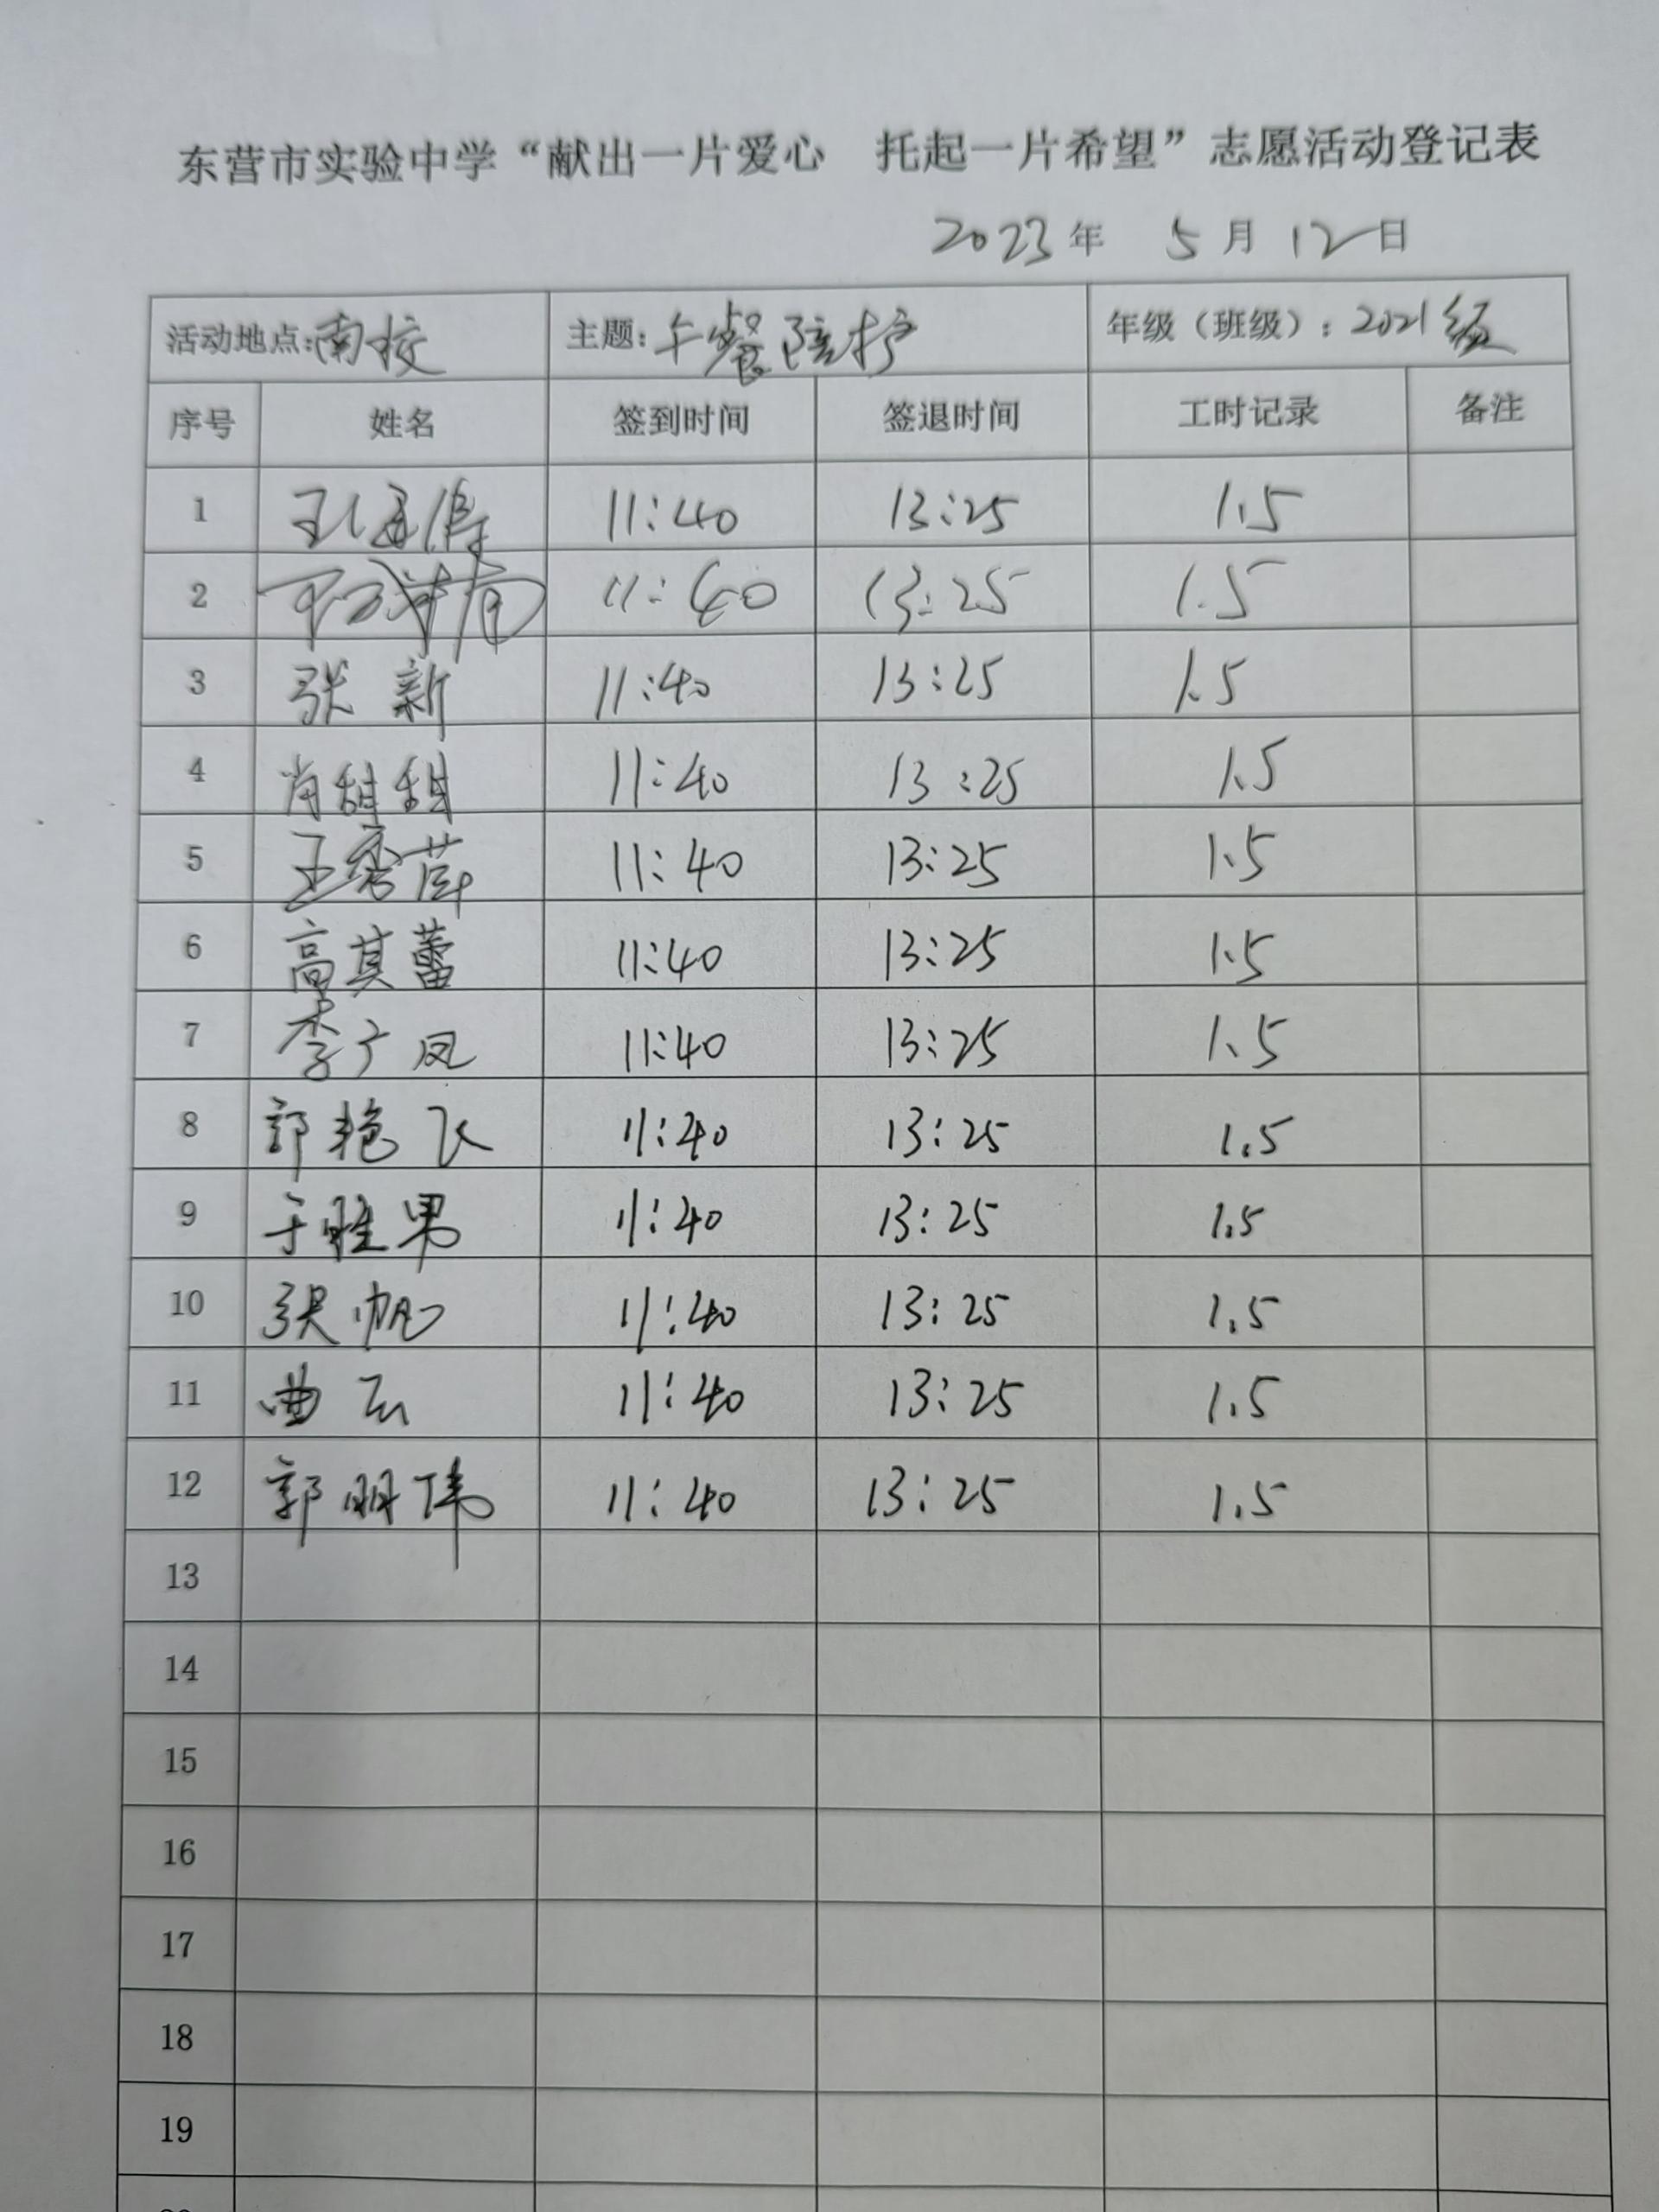 东营市实验中学“献出一片爱心 托起一片希望”志愿活动登记表
2023年 5月12日
活动地点:南校 主题:午餐陪护 年级（班级）:2021级
序号 姓名 签到时间 签退时间 工时记录 备注
1 11:40 13:25 1.5
2 11:40 13:25 1.5
3 张新 11:40 13:25 1.5
4 肖甜甜 11:40 13:25 1.5
5 王秀萍 11:40 13:25 1.5
6 高其蕾 11:40 13:25 1.5
7 李广凤 11:40 13:25 1.5
8 郭艳飞 11:40 13:25 1.5
9 于胜男 11:40 13:25 1.5
10 张帆 11:40 13:25 1.5
11 曲云 11:40 13:25 1.5
12 郭明伟 11:40 13:25 1.5
13
14
15
16
17
18
19